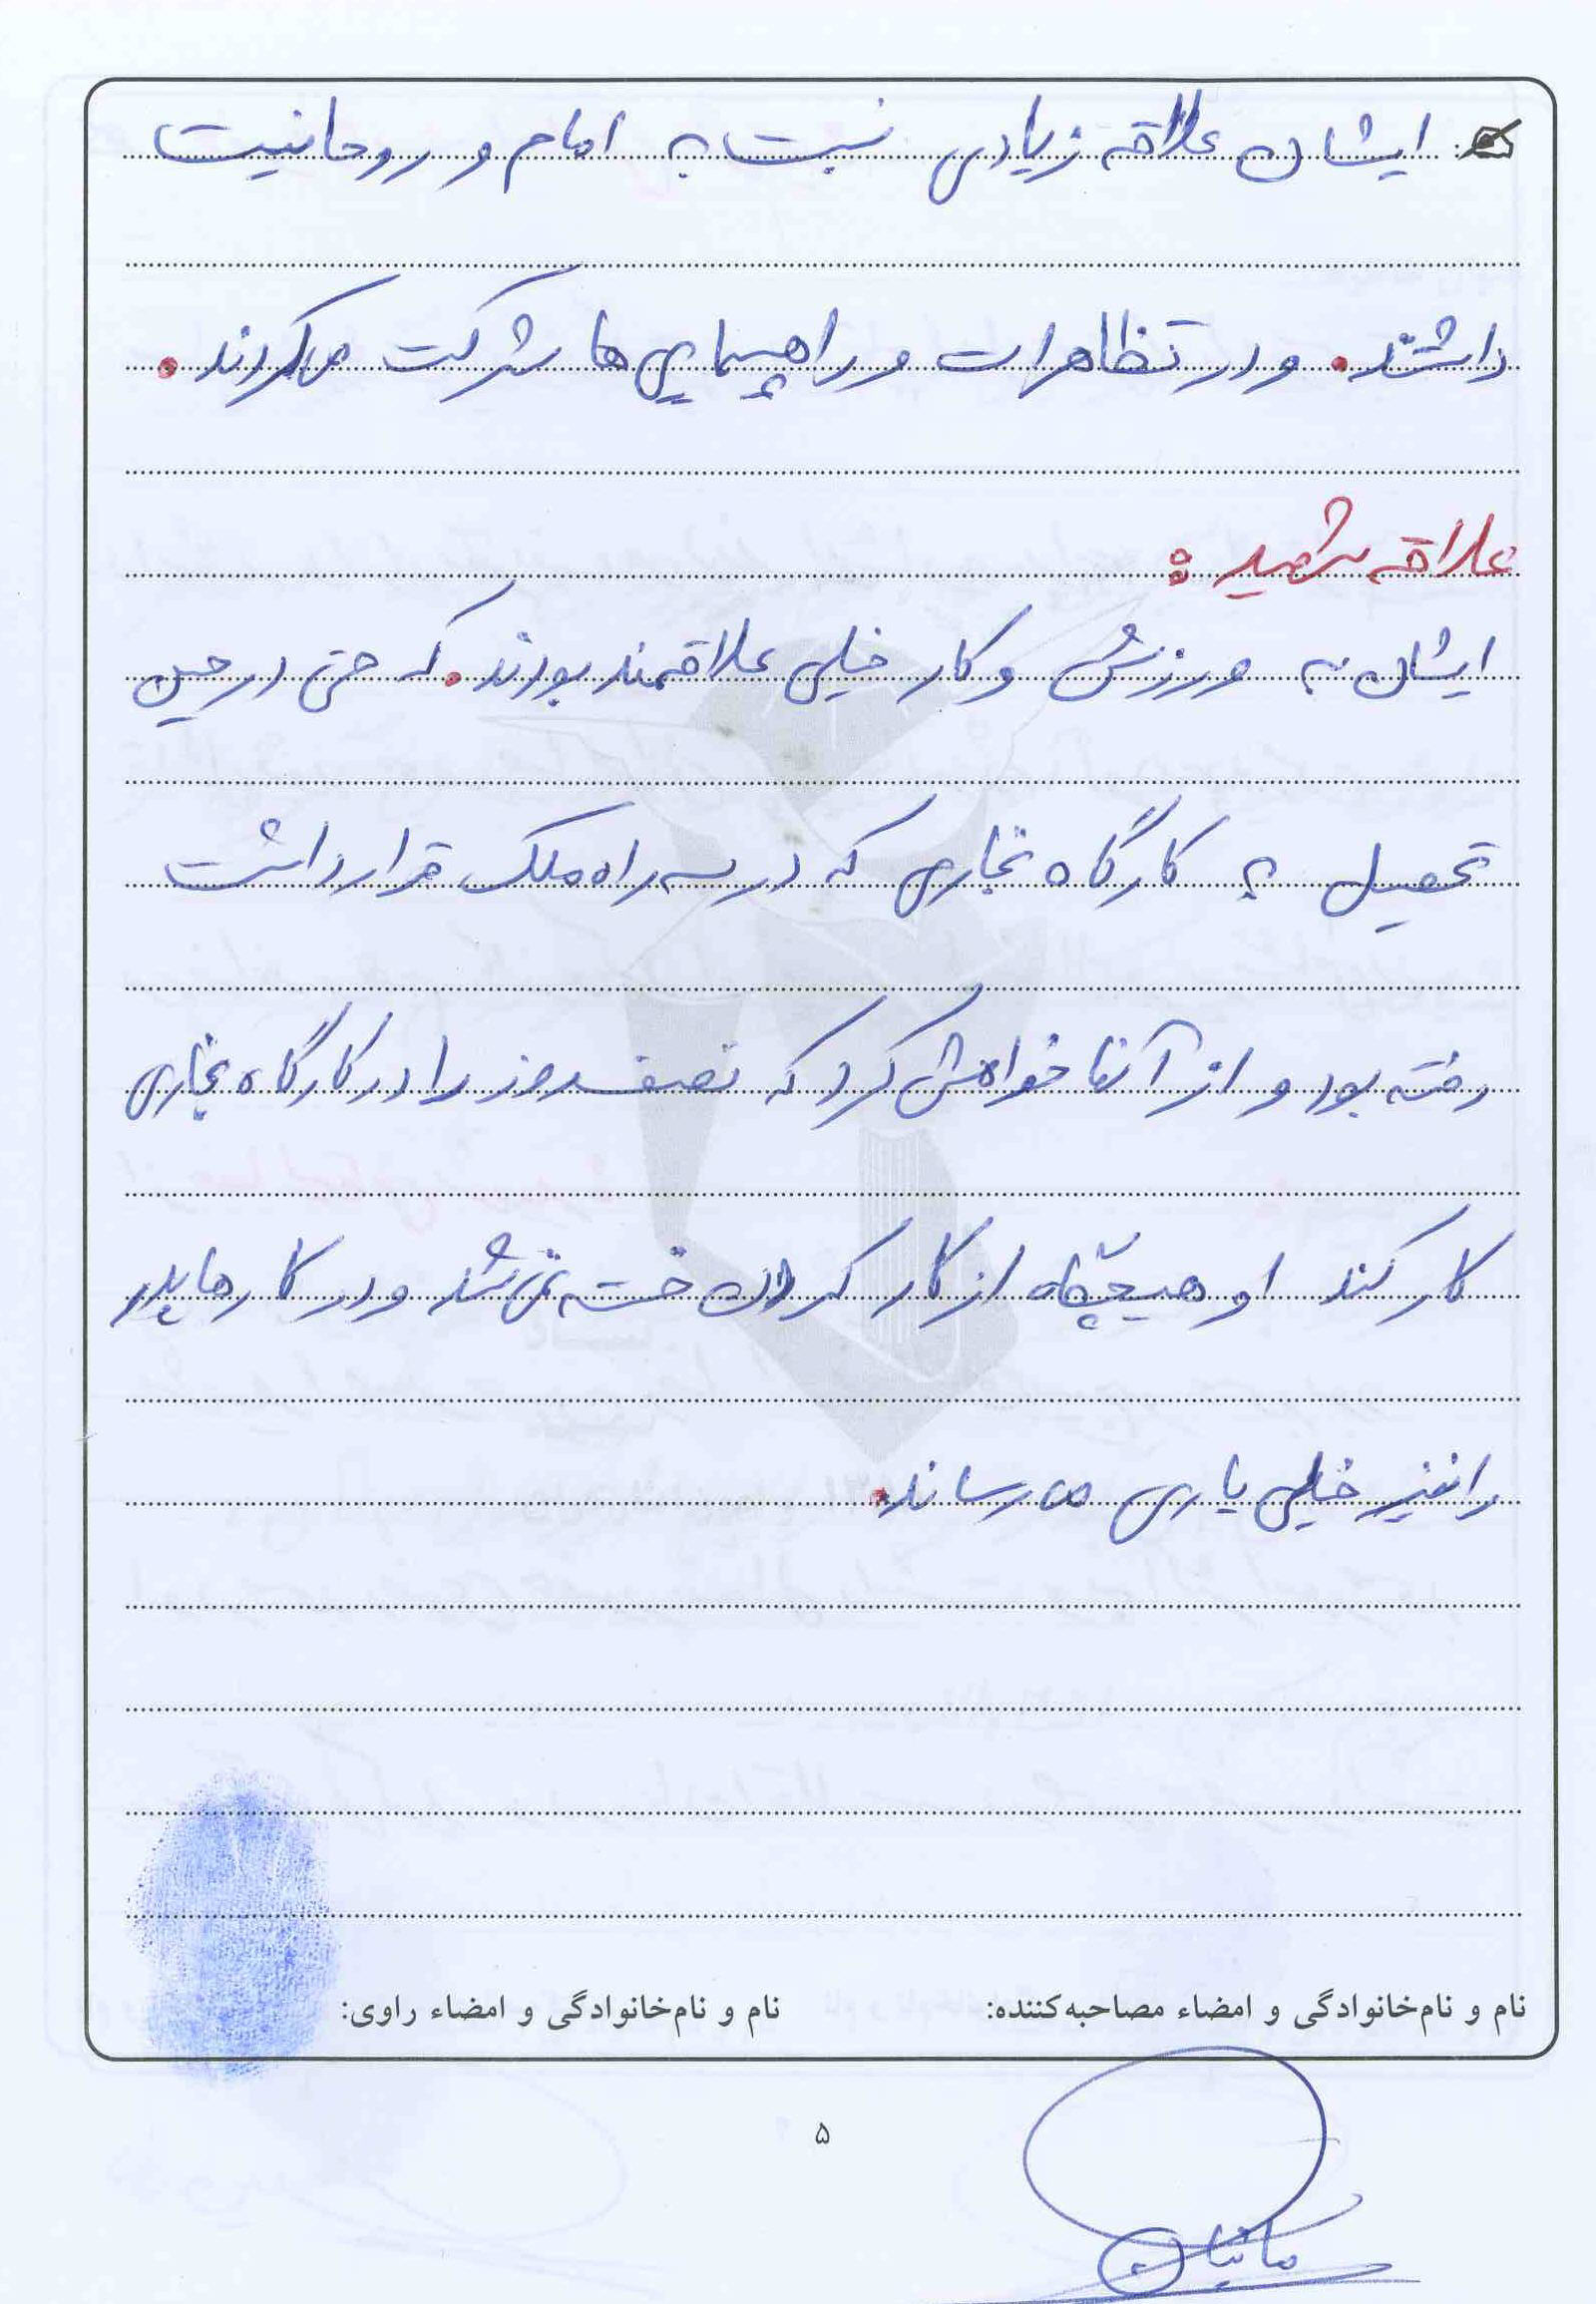 ایشان علاقه زیادی نسبت به امام و روحانیت
داشتند. و در تظاهرات و راهپیمایی ها شرکت میکردند.
علاقه شهید:
ایشان به ورزش و کار خیلی علاقمند بودند. که حتی در حین
تحصیل به کارگاه نجاری که در سه راه ملک قرار داشت
رفته بود و از آنها خواهش کرد که نصف روز را در کارگاه نجاری
کار کند او هیچگاه از کار کردن خسته نمی شد و در کارها پدر
را نیز خیلی یاری می رساند.
نام و نام‌خانوادگی و امضاء مصاحبه‌کننده:
نام و نام‌خانوادگی و امضاء راوی:
۵